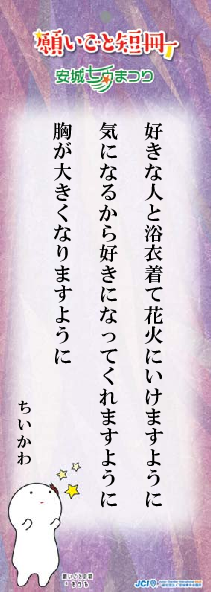 願いごと短冊
安城七夕まつり
好きな人と浴衣着て花火にいけますように
気になるから好きになってくれますように
胸が大きくなりますように
ちいかわ
願いごと短冊
JCI